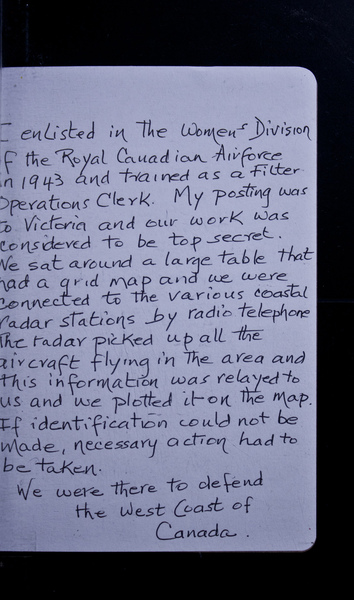 I enlisted in The Womens Division
of the Royal Canadian Airforce
in 1943 and trained as a Filter
Operations Clerk. My posting was
to Victoria and our work was
considered to be top secret.
We sat around a large table that
had a grid map and we were
connected to the various coastal
radar stations by radio telephone
The radar picked up all the
aircraft flying in the area and
this information was relayed to
us and we plotted it on the map.
If identification could not be
made, necessary action had to
be taken.
We were there to defend
the West Coast of
Canada.